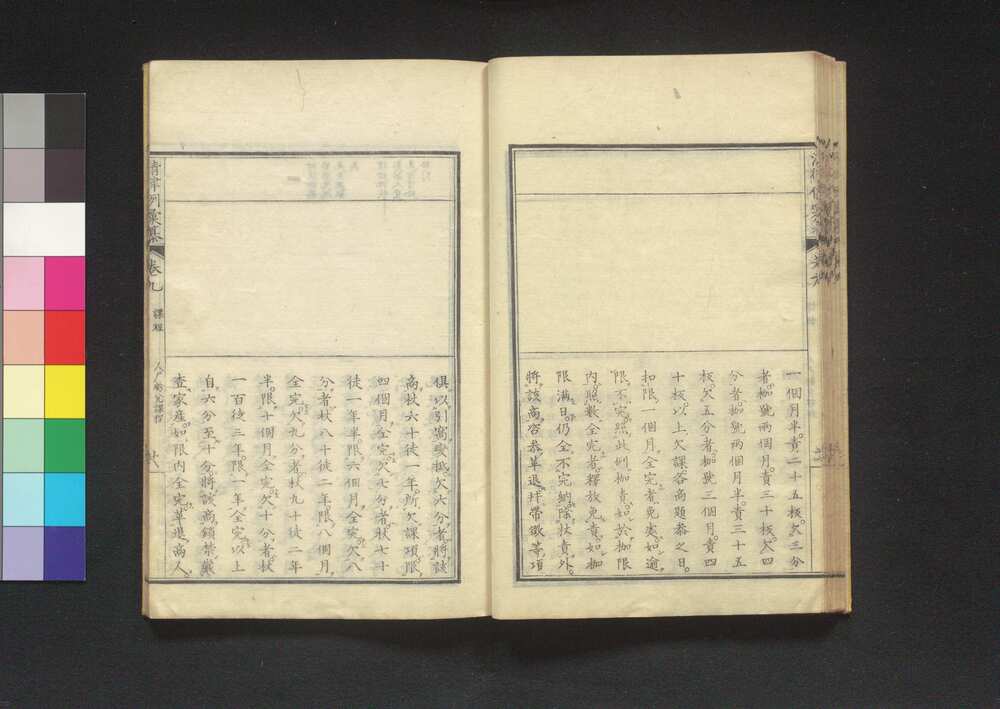 一個月半責二十五板欠三分
者枷號兩個月責三十板欠四
分者枷號兩個月半責三十五
板欠五分者枷號三個月責四
十板以上欠課各商題叅之日
扣限一個月全完者免處如逾
限不完照此例枷責如於枷限
內照數全完者釋放免責如枷
限滿日仍全不完納除杖責外
將該商咨叅革退拜帶徵等項
俱以引窩變抵欠六分者將該
商杖六十徒一年所欠課項限
四個月全完欠七分者杖七十
徒一年半限六個月全完欠八
分者杖八十徒二年限八個月
全完欠九分者杖九十徒二年
半限十個月全完欠十分者杖
一百徒三年限一年全完以上
自六分至十分將該商鎖禁嚴
查家產如限內全完革退商人
清律例彙纂 卷九 課程